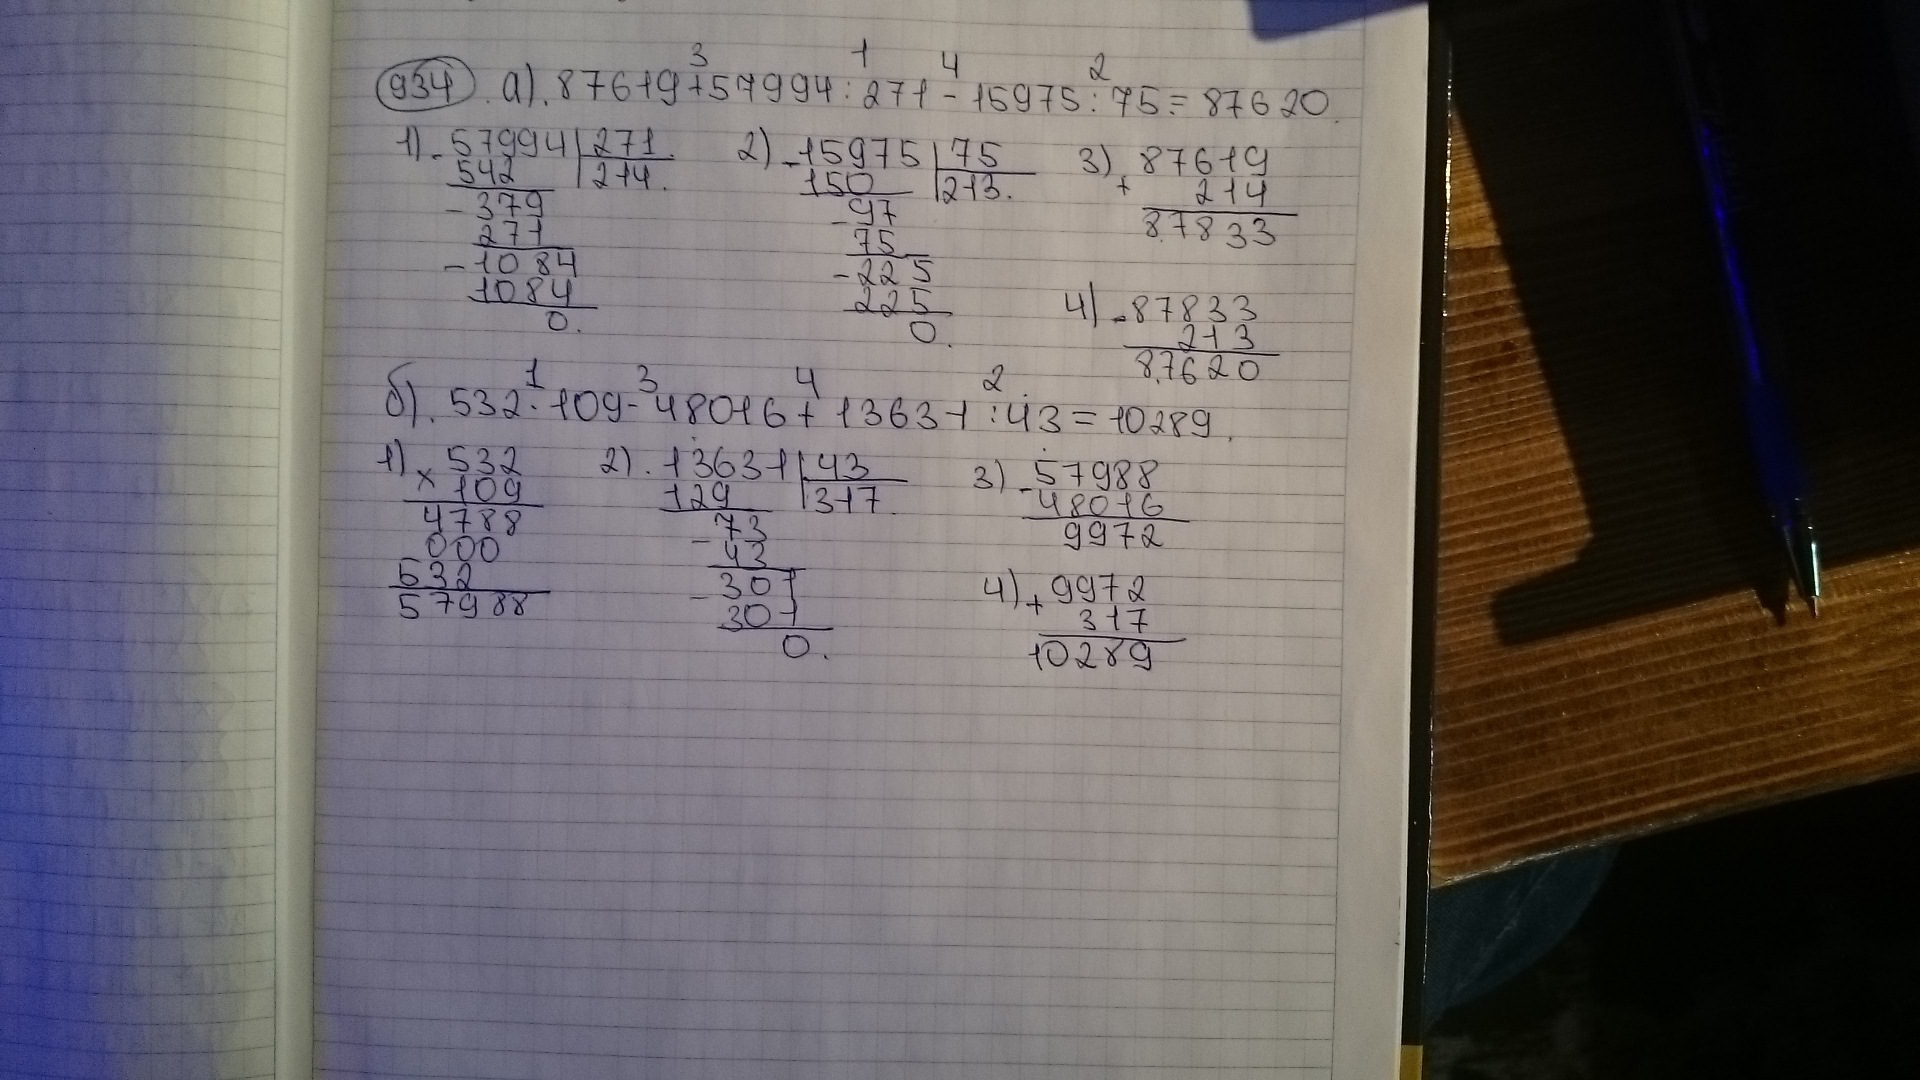 934. а). 87619+57994:271-15975:75=87620.
3 1 4 2
1) -57994|271
542 |214.
-379
271
-1084
1084
0.
2) -15975|75
150 |213.
-97
75
-225
225
0.
3) +87619
214
87833
4) -87833
213
87620
б). 532·109-48016+13631:43=10289.
1 3 4 2
1) ×532
109
4788
000
532
57988
2). 13631|43
129 |317.
-73
43
-301
301
0.
3) -57988
48016
9972
4) +9972
317
10289